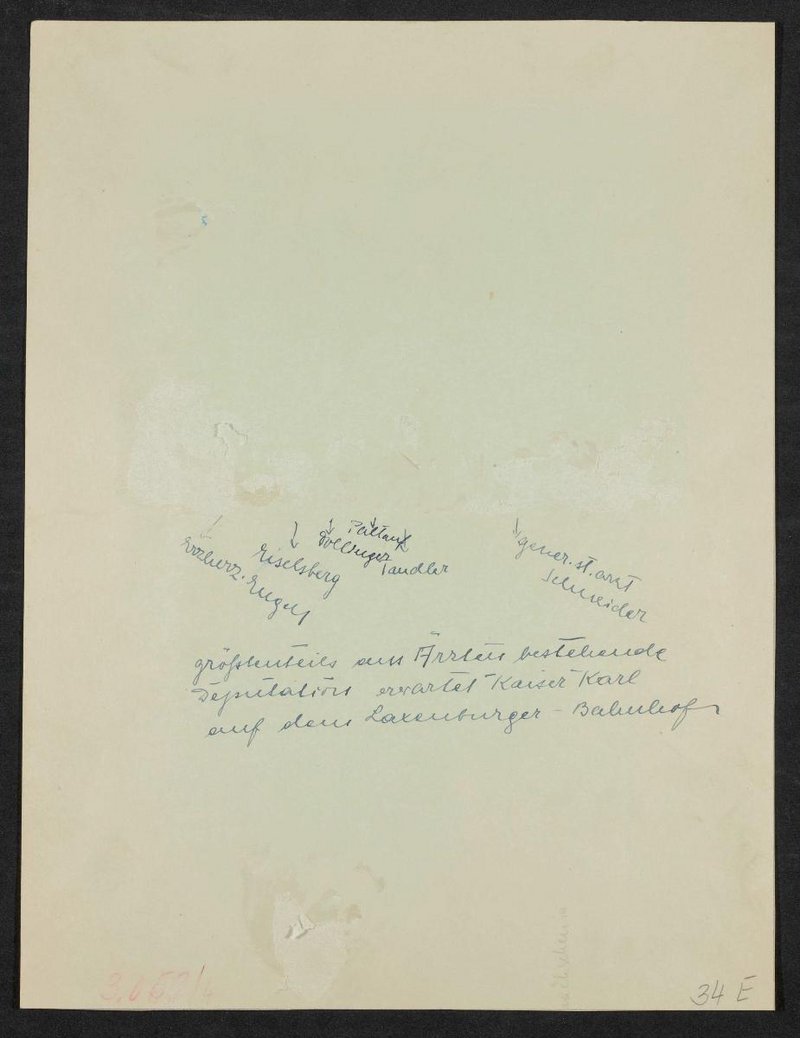 Erzherz. Eugen
Eiselsberg
Pöltauf
Tandler
gener. st. arzt
Schneider
größtenteils aus Ärzten bestehende
Deputation erwartet Kaiser Karl
auf dem Laxenburger - Bahnhof
34 E